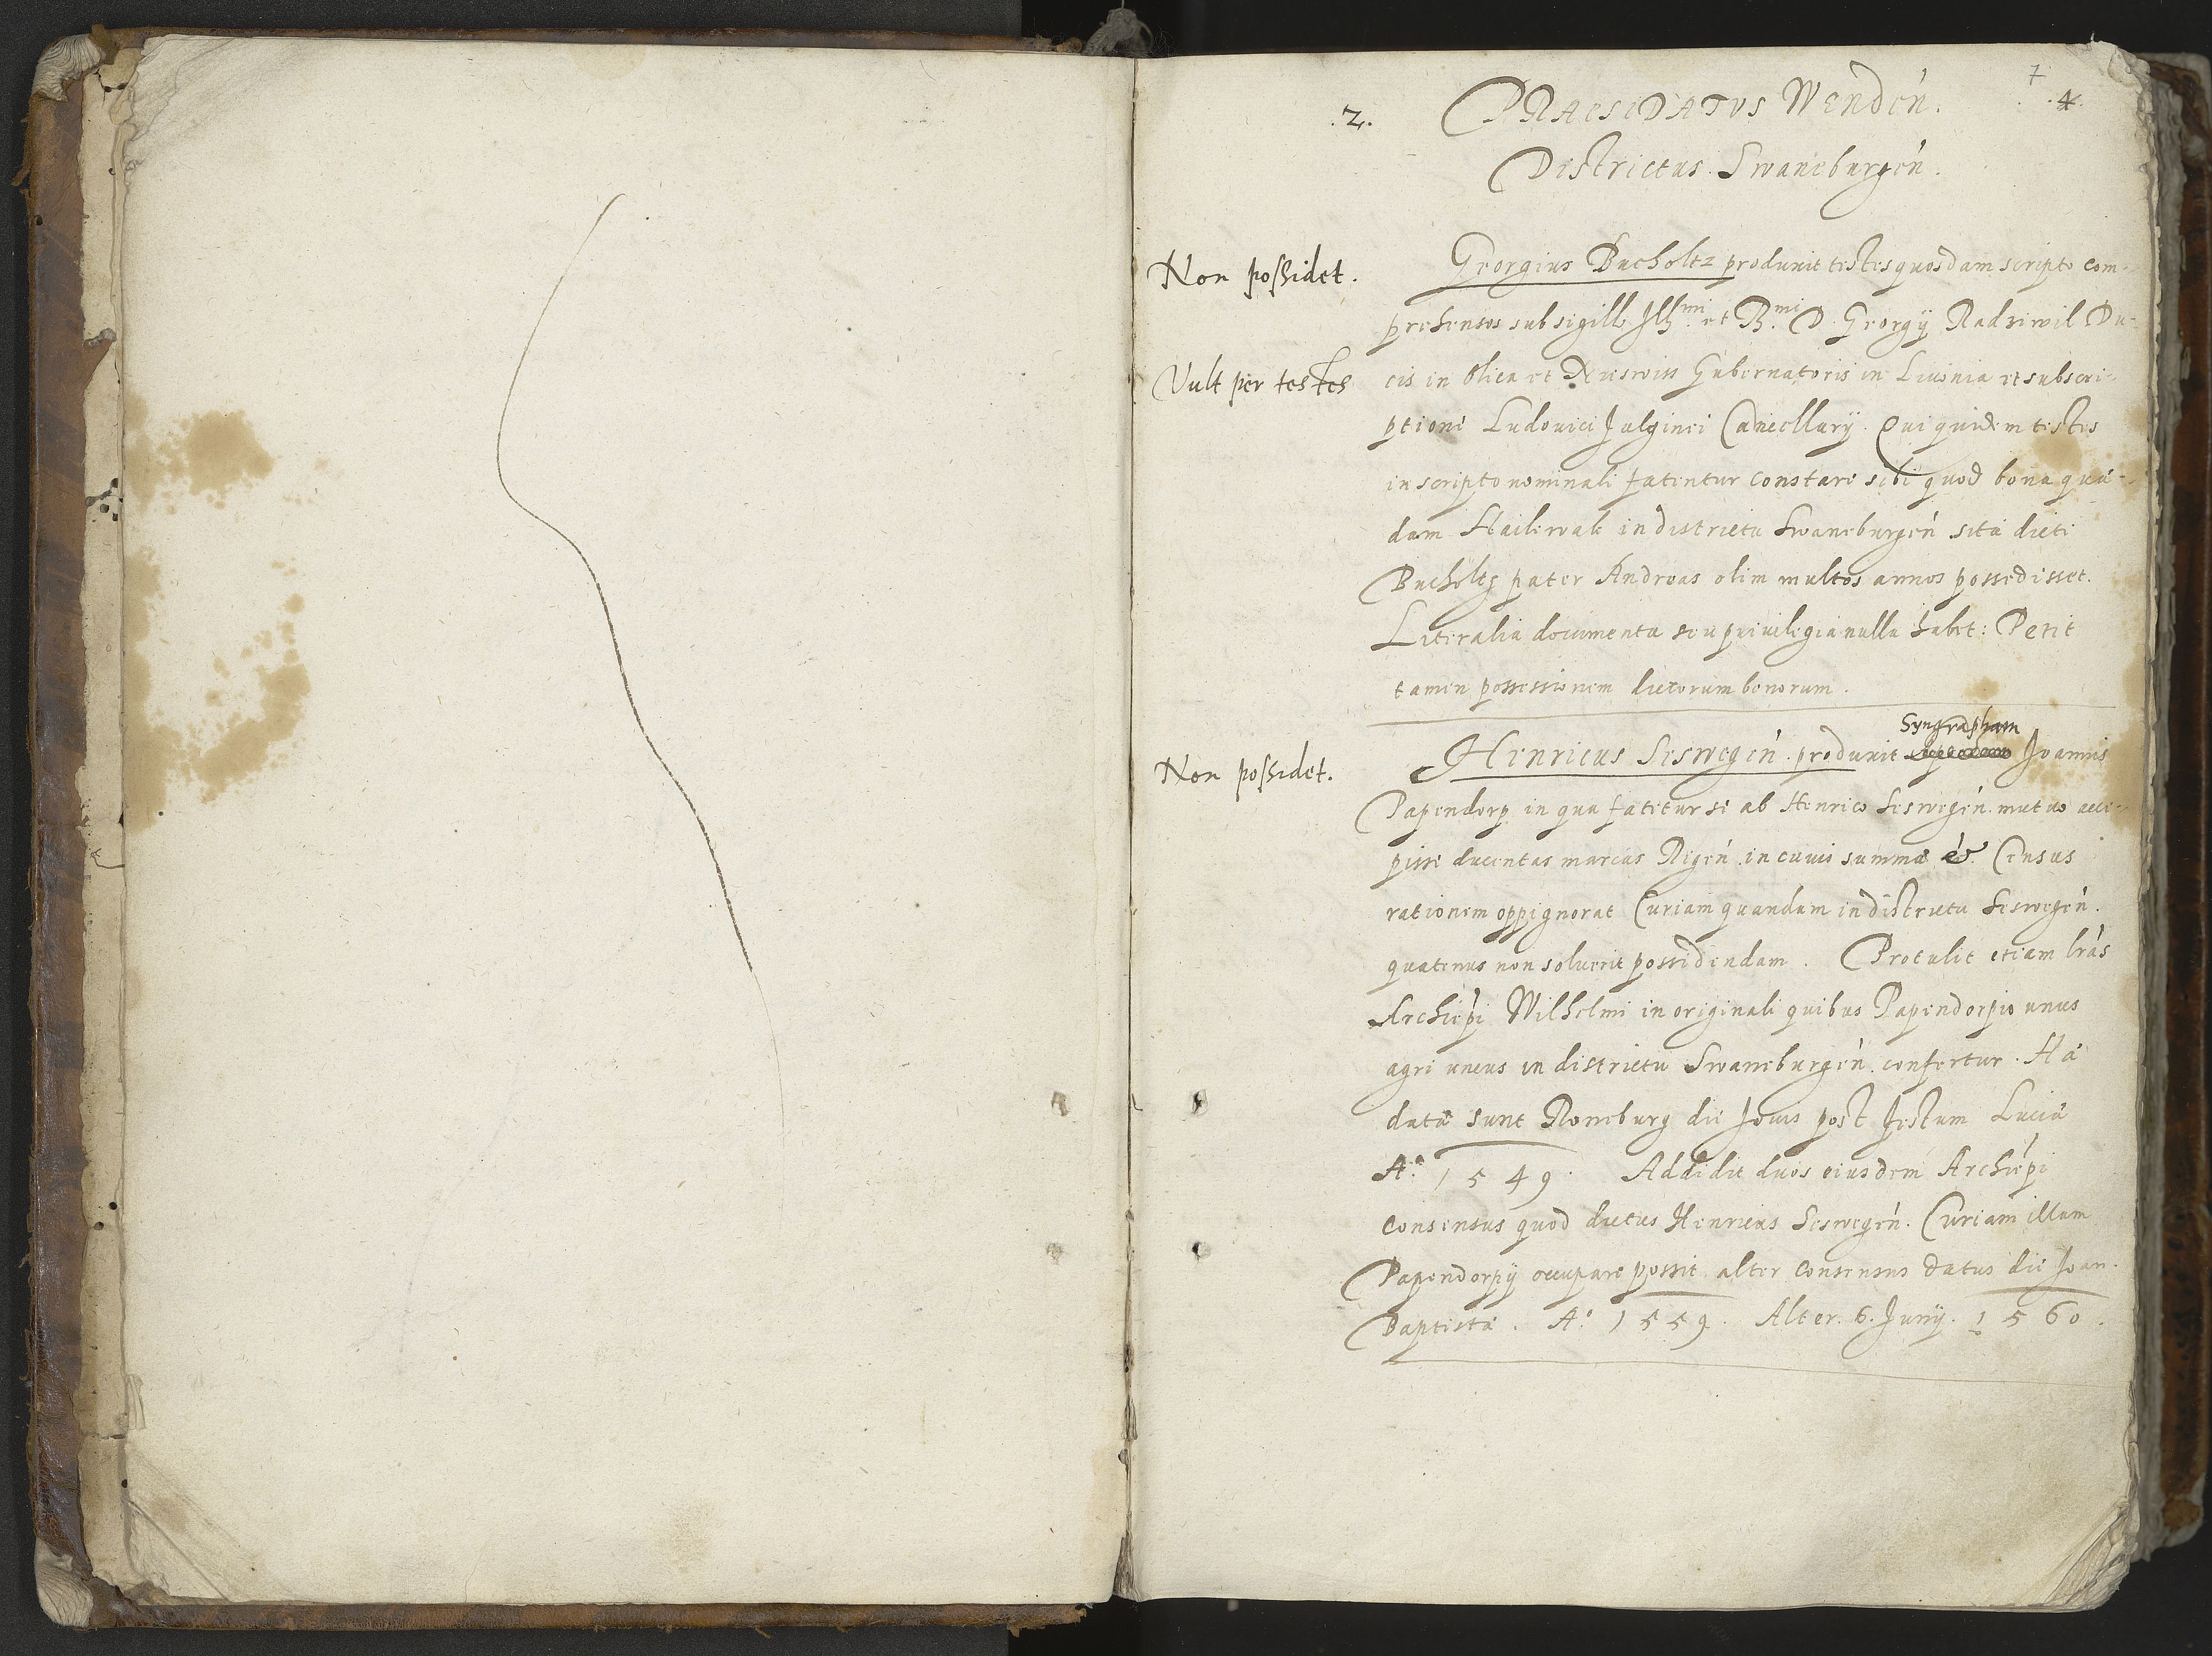 7
.2. PRAESIDATVS Wenden̄. .4.
Districtus Swaneburgen̄.
Non possidet.
Georgius Bucholtz produxit testes quosdam scripto com-
prehensos sub sigillo Illmi et Rmi D. Georgÿ Radziwil Du-
Vult per testes
cis in Olica et Nieswiss Gubernatoris in Liuonia et subscri-
ptione Ludouici Cancellarÿ. Qui quidem testes
in scripto nominali fatentur constare sibi quod bona quę-
dam Hailewale in districtu Swaneburgen̄ sita dicti
Bucholtz pater Andreas olim multos annos possedisset.
Literalia documenta seu priuilegia nulla habet: Petit
tamen possessionem dictorum bonorum.
Non possidet.
Syngrapham
Henricus Seswegen̄. produxit Joannis
Papendorp in qua fatetur se ab Henrico Seswegen̄. mutuo acce-
pisse ducentas marcas Rigen̄. in cuius summę et Census
rationem oppignorat Curiam quandam in districtu Seswegen̄.
quatenus non soluerit possidendam. Protulit etiam lrās
Archiep̄i Wilhelmi in originali quibus Papendorpio unus
agri uncus in districtu Swaneburgen̄. confertur. Hę
datę sunt Roneburg die Jouis post festum Lucię
A.º 1549. Addidit duos eiusdem Archiep̄i
consensus quod dictus Henricus Seswegen̄. Curiam illam
Papendorpÿ occupare possit alter consensus datus die Joan.
Baptistę. A.º 1559. Alter. 6. Junÿ. 1560.